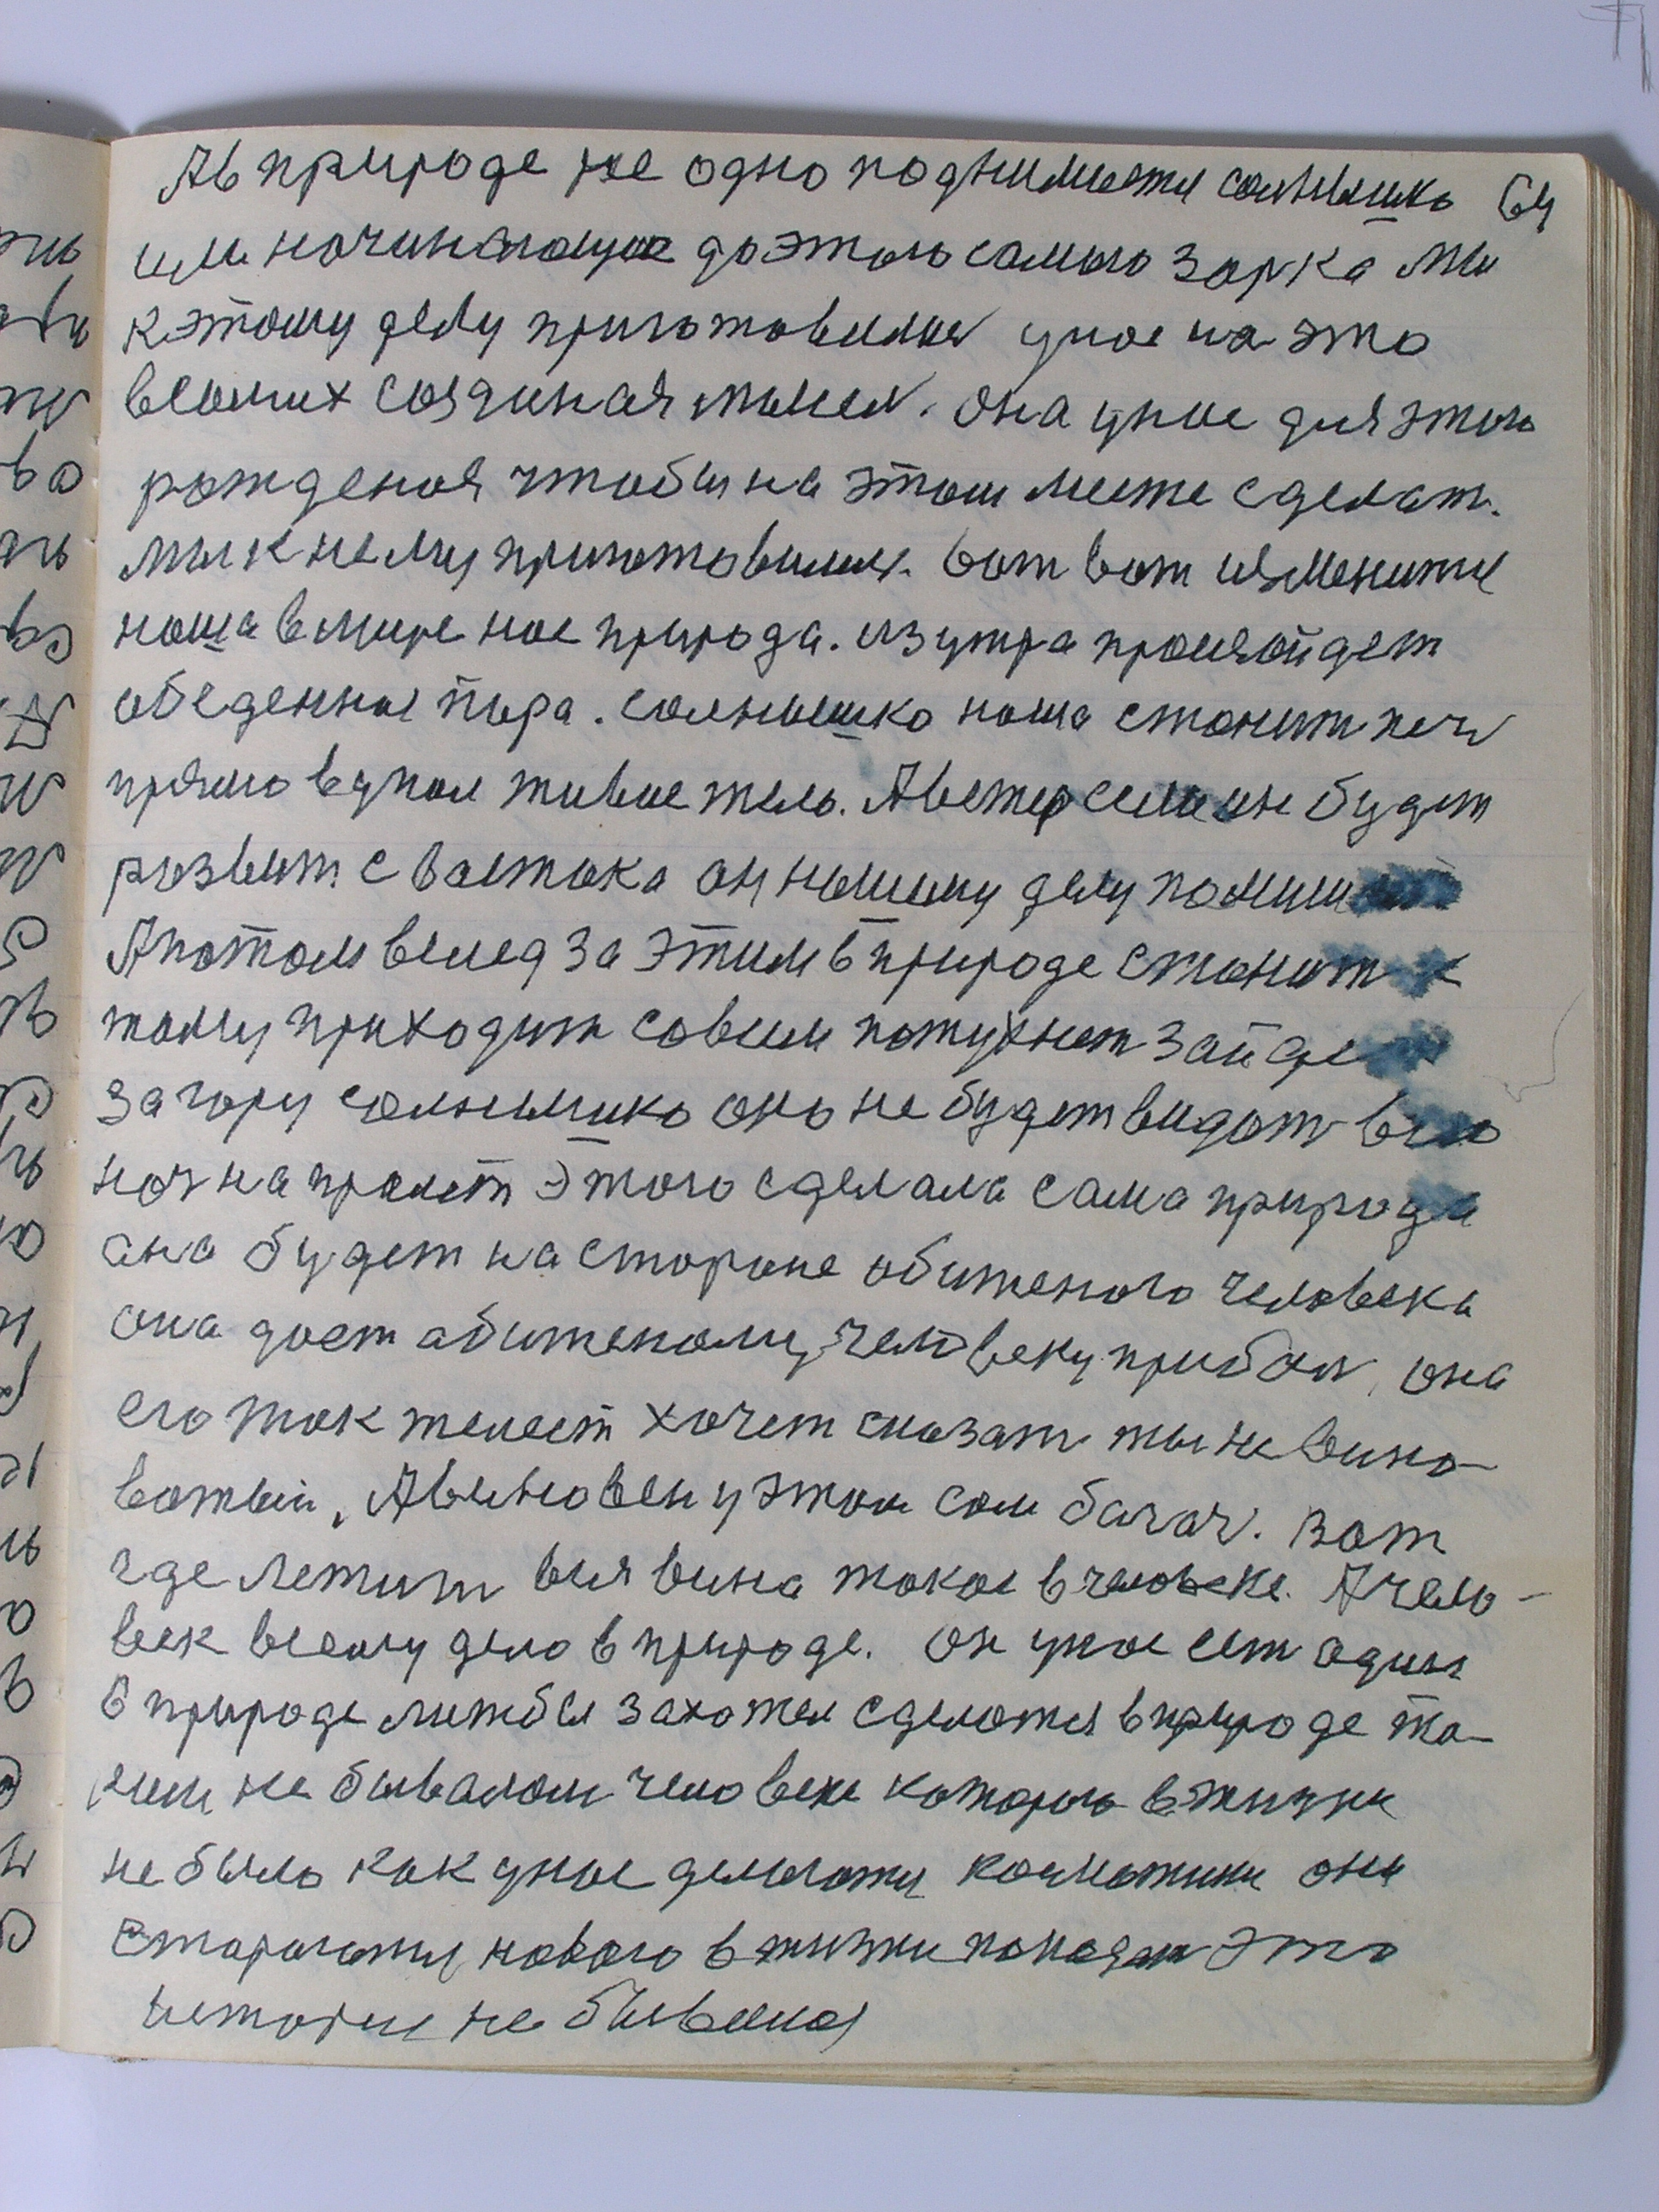 А в природе не одно поднимиется солнышко 64
или начинающие до этого самого зарка мы
к этому делу приготовилися у нас на это
в самих созданая мысел. она у нас для этого
рожденоя чтобы на этом месте сделат.
мы к нему приготовилис. вот вот изменится
наша в мире нас природа. из утра произойдет
обеденное пара. солнышко наша станит печ
прямо в упол живое тело. А ветер если он будет
развит с востока он нашему делу
А потом вслед за этим в природе станит к
тому приходит совсем потухнет
за гору солнышко оно не будет видат всю
ноч на пролет этого сделала сама природа
она будет на стороне обиженого человека
она дает абиженому человеку прибол, она
его так жалеет хочет сказат ты не вино-
ватый. А виновен у этом сам багач. вот
где лежит вся вина такое в человеке. А чело-
век всему дело в природе. он у нас ест один
в природе лиж бы захотел сделатся в природе та-
ким не бывалом человеке которого в жизни
не было как у нас делаются они
стараются нового в жизни это
история не бывалоя